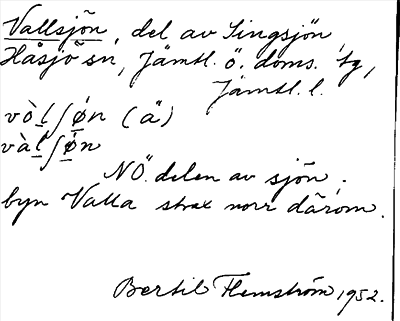 Vallsjön, del av Singsjön,
Håsjö sn, Jämtl. ö. doms. tg,
Jämtl. l.
vòlʃø̀n (ä)
vàlʃø̀n
NÖ. delen av sjön.
byn Valla strax norr därom.
Bertil Flemström 1952.